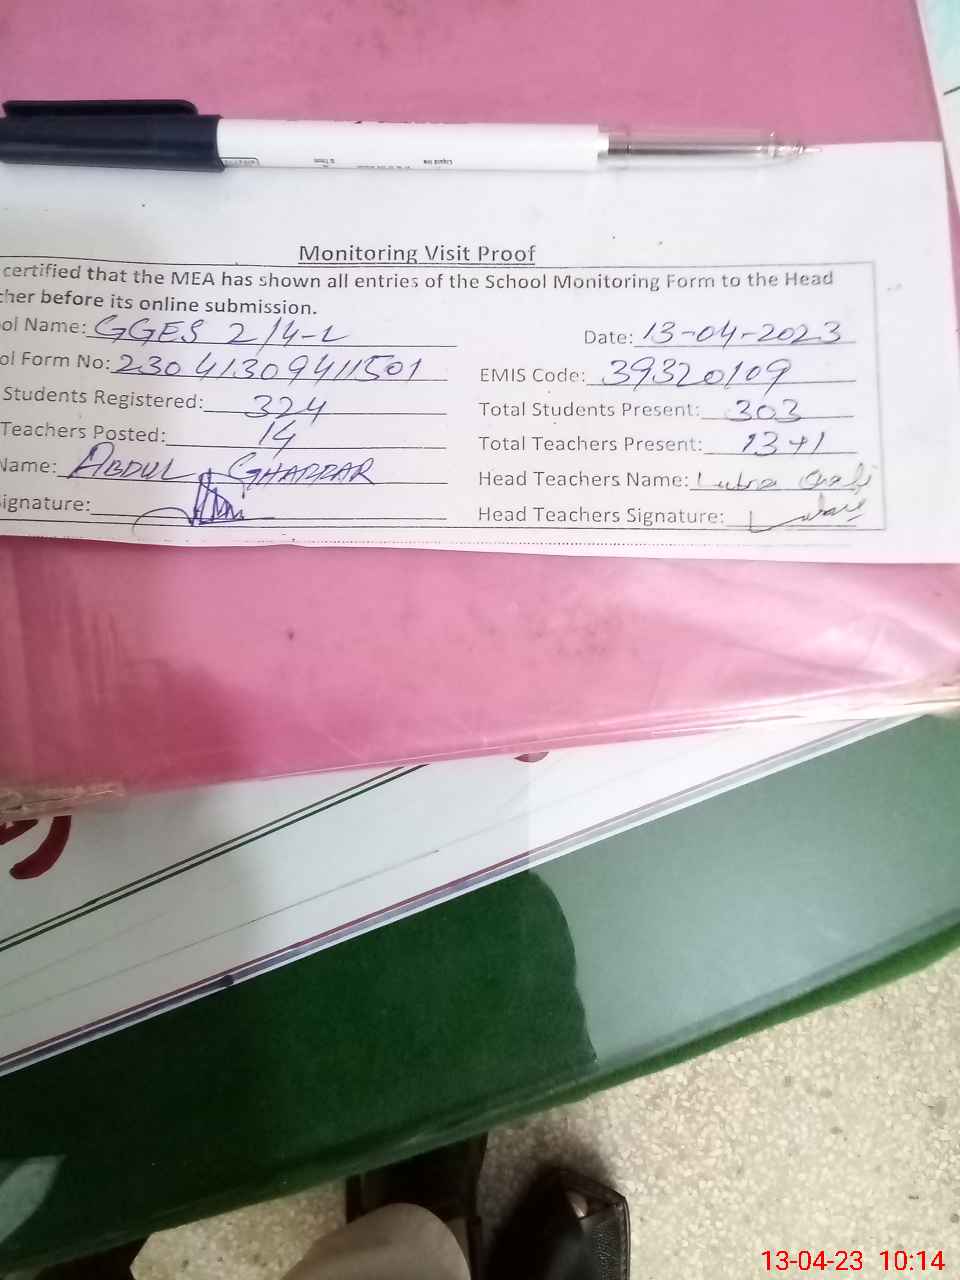 Liquid Ink
Monitoring Visit Proof
certified that the MEA has shown all entries of the School Monitoring Form to the Head
cher before its online submission.
ol Name: GGES 2/4-L Date: 13-04-2023
ol Form No: 23041309411501 EMIS Code: 39320109
Students Registered: 324 Total Students Present: 303
Teachers Posted: 14 Total Teachers Present: 13+1
Name: ABDUL GHAFFAR Head Teachers Name: Lubna
ignature: Head Teachers Signature:
13-04-23 10:14